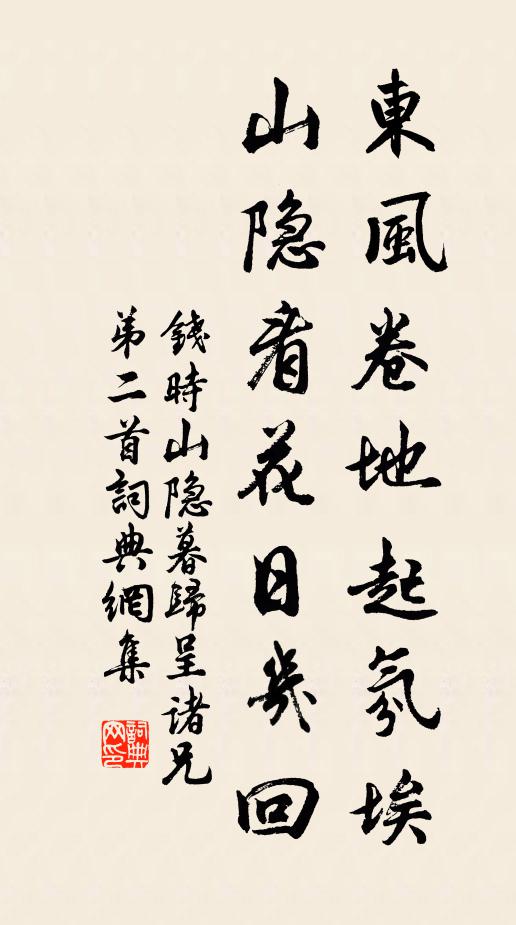 東風卷地起氛埃
山隐看花日幾回
錢時山隐暮歸呈诸兄
第二首詞典網集
詞典
网印